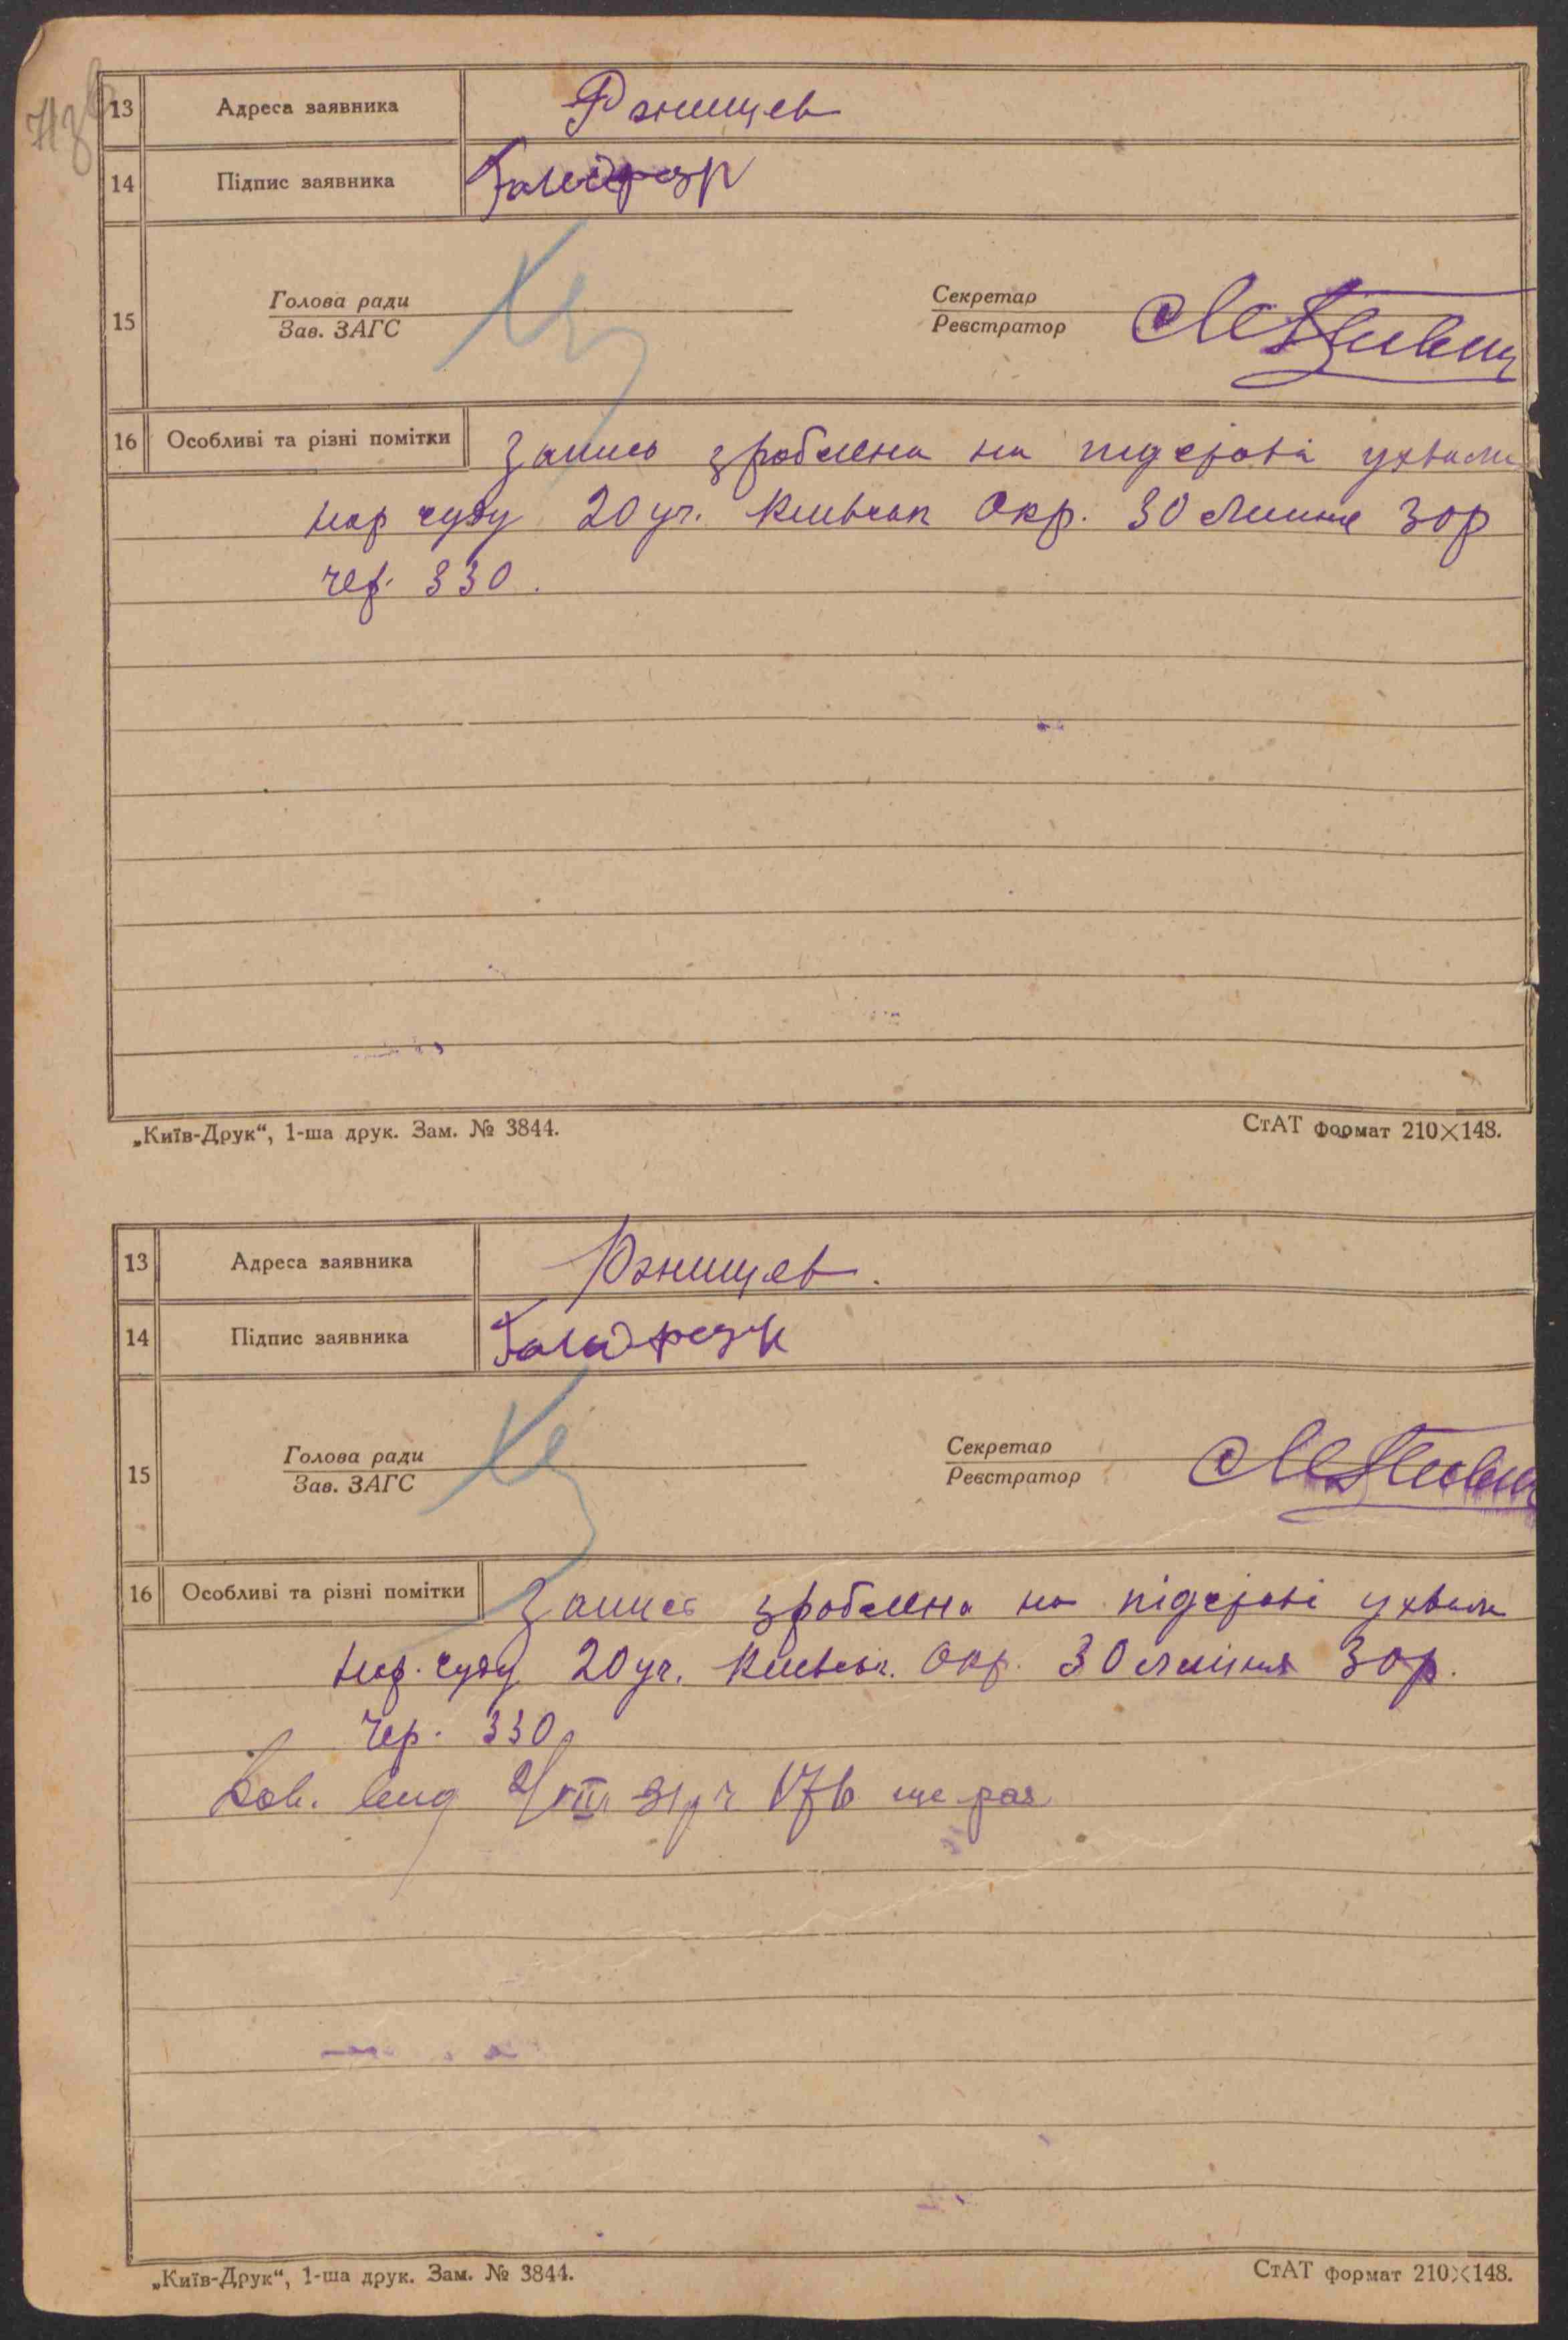 13 Адреса заявника Ржищев
14 Підпис заявника
15 Голова ради Секретар
Зав. ЗАГС Реєстратор
16 Особливі та різні помітки Запись зроблена на підставі ухвали
нар суду 20 уч. Окр. 30 Липня 30р
чер. 330.
„Київ-Друк“, 1-ша друк. Зам. № 3844. СтАТ формат 210×148.
13 Адреса заявника Ржищев.
14 Підпис заявника
15 Голова ради Секретар
Зав. ЗАГС Реєстратор
16 Особливі та різні помітки Запись зроблена на підставі ухвали
нар. суду 20 уч. Окр. 30 липня 30р.
чер. 330
ще раз
„Київ-Друк“, 1-ша друк. Зам. № 3844. СтАТ формат 210×148.